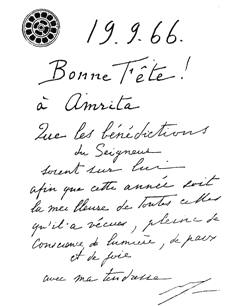 19.9.66.
Bonne Fête!
à Amrita
Que les bénédictions
du Seigneur
soient sur lui
afin que cette année soit
la meilleure de toutes celles
qu'il a vécues, pleine de
conscience de lumière, de paix
et de joie
avec ma tendresse